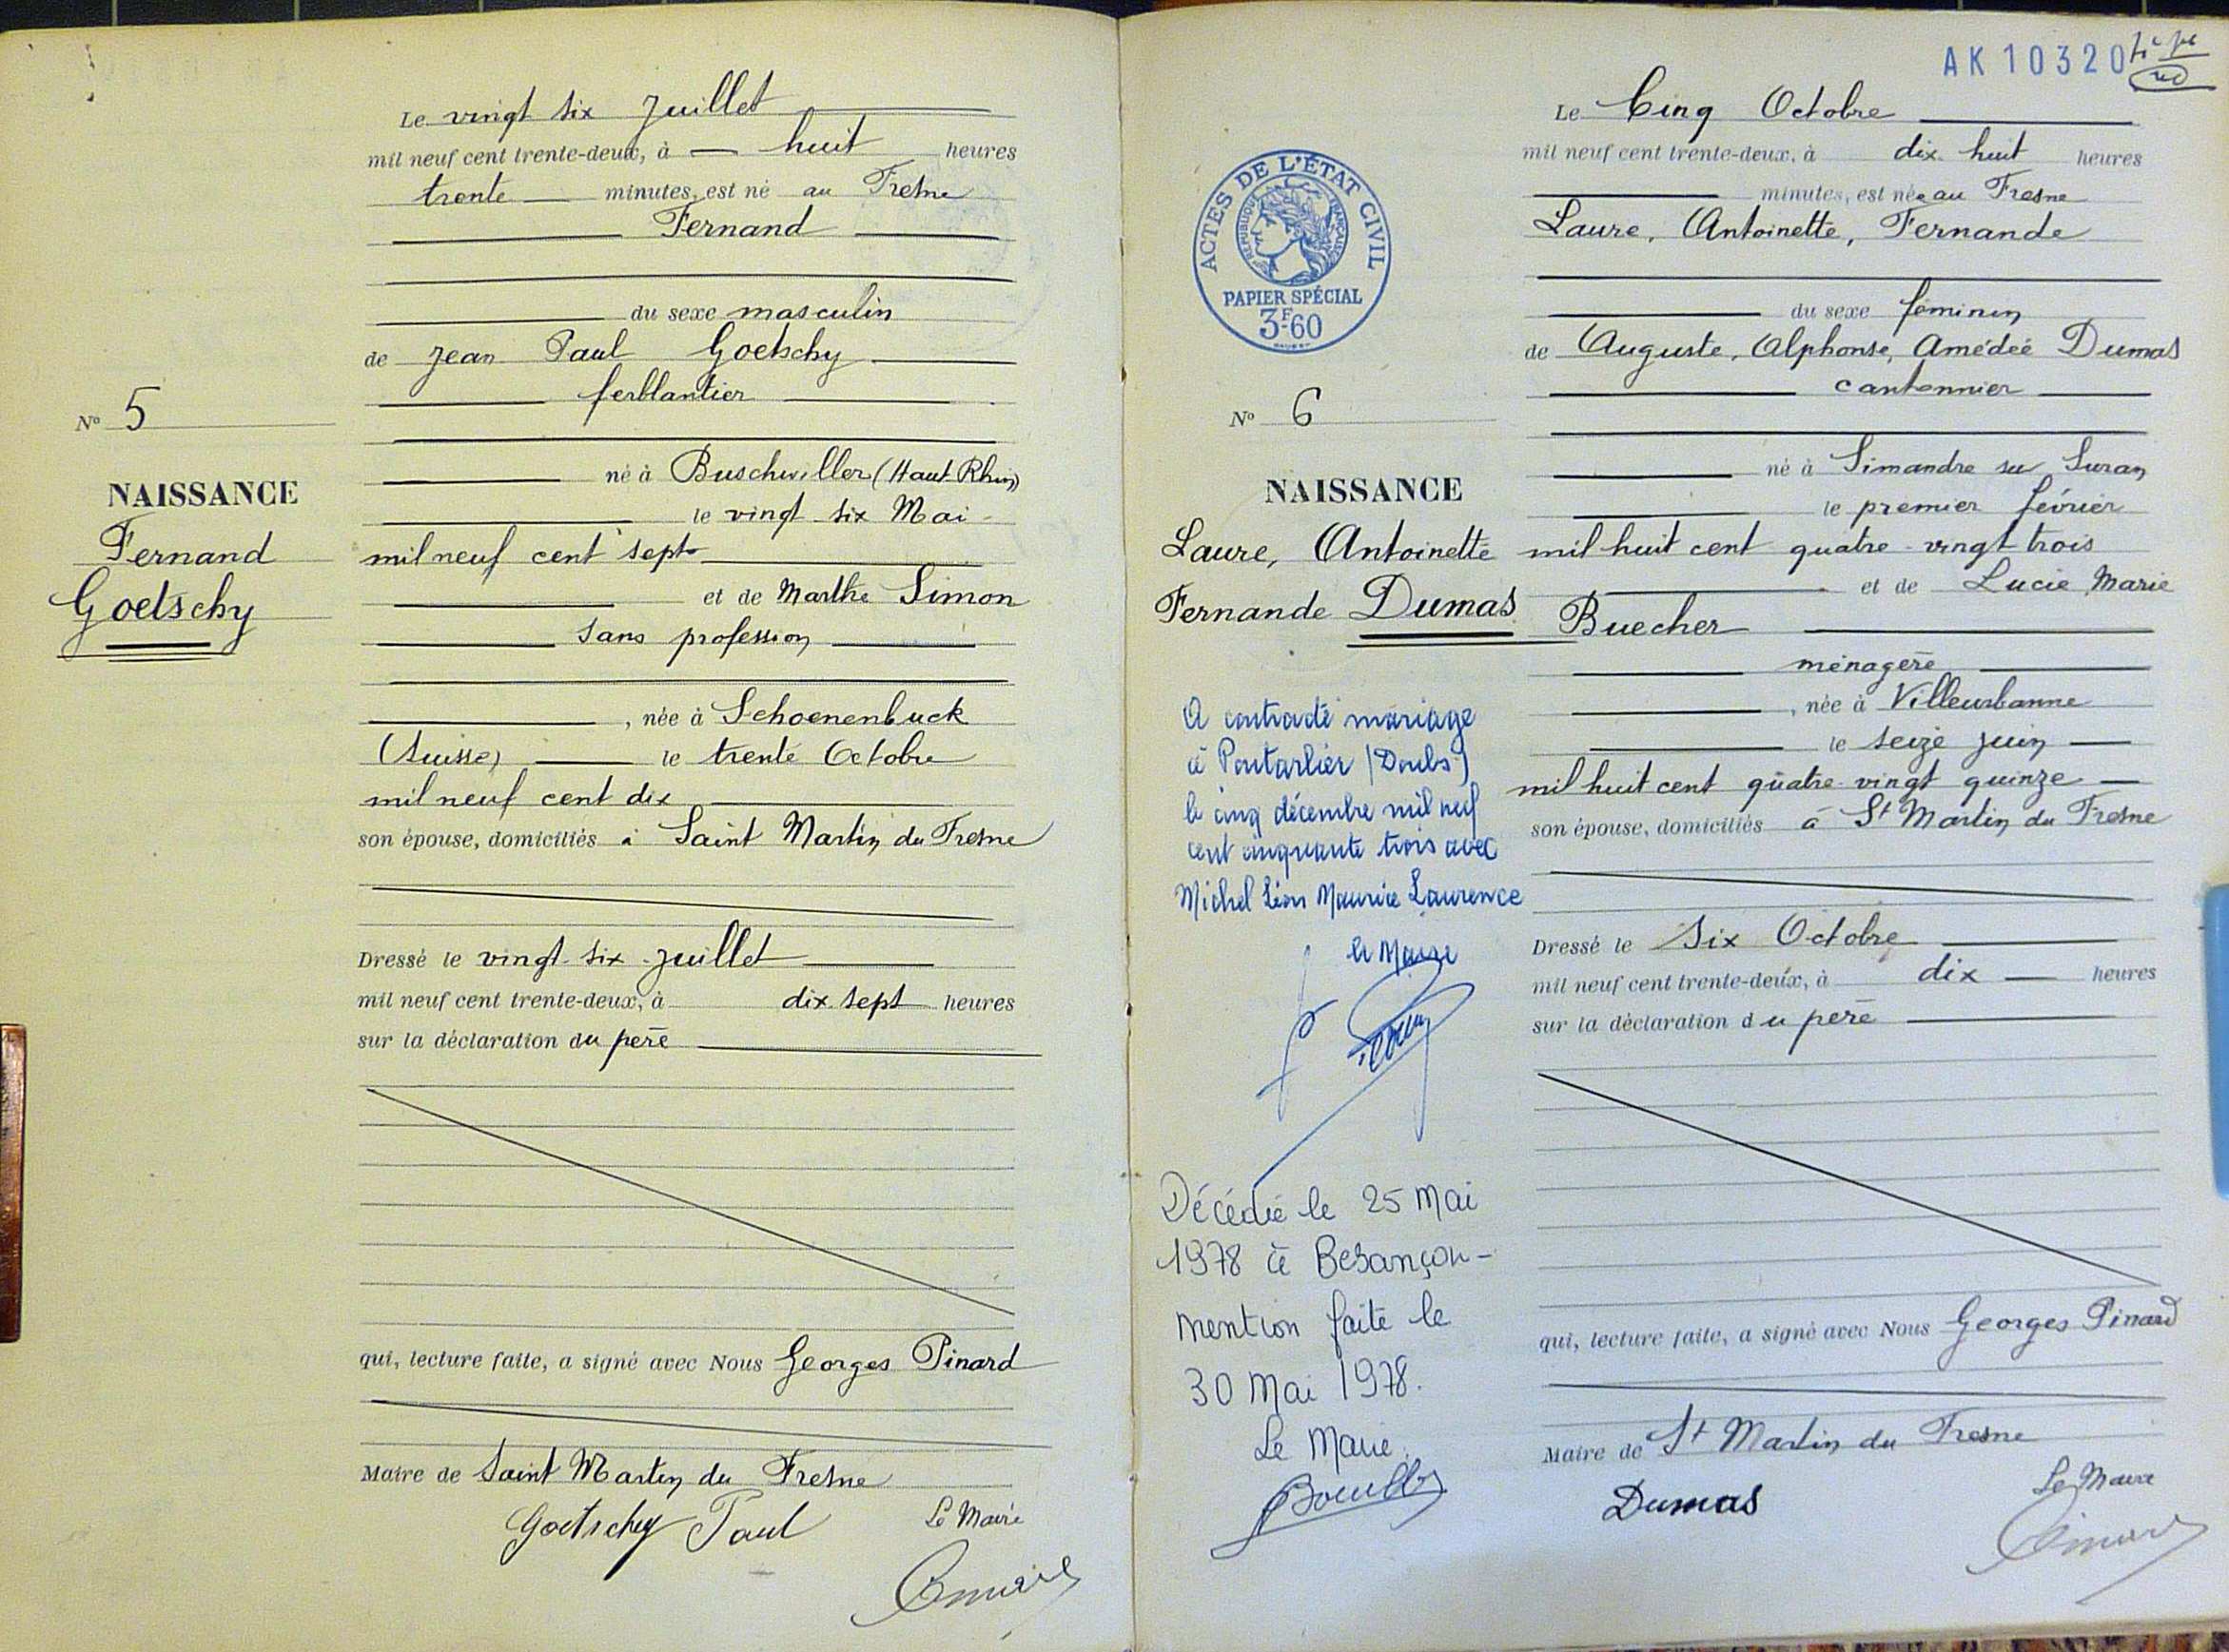 Le vingt six Juillet
mil neuf cent trente-deux, à huit heures
trente minutes, est né au Fresne
Fernand
du sexe masculin
de Jean Paul Goetschy
ferblantier
né à Buschwiller (Haut-Rhin)
le vingt six Mai
mil neuf cent sept
et de Marthe Simon
sans profession
, née à Schoenenbuck
(Suisse) le trente Octobre
mil neuf cent dix
son épouse, domiciliés à Saint Martin du Fresne
Dressé le vingt-six Juillet
mil neuf cent trente-deux, à dix-sept heures
sur la déclaration du père
qui, lecture faite, a signé avec Nous Georges Pinard
Maire de Saint Martin du Fresne
Goetschy Paul
Le Maire
N° 5
NAISSANCE
Fernand
Goetschy
AK 10320
ACTES DE L'ÉTAT CIVIL
RÉPUBLIQUE FRANÇAISE
PAPIER SPÉCIAL
3F60
N° 6
NAISSANCE
Laure, Antoinette
Fernande Dumas
A contracté mariage
à Pontarlier (Doubs)
le cinq décembre mil neuf
cent cinquante trois avec
Michel Léon Maurice Laurence
le Maire
Décédée le 25 Mai
1978 à Besançon -
mention faite le
30 Mai 1978.
Le Maire
Le Cinq Octobre
mil neuf cent trente-deux, à dix huit heures
minutes, est née au Fresne
Laure, Antoinette, Fernande
du sexe féminin
de Auguste, Alphonse, Amédée Dumas
cantonnier
né à Simandre sur Suran
le premier février
mil huit cent quatre-vingt trois
et de Lucie, Marie
Buecher
ménagère
, née à Villeurbanne
le seize juin
mil huit cent quatre-vingt quinze
son épouse, domiciliés à St Martin du Fresne
Dressé le Six Octobre
mil neuf cent trente-deux, à dix heures
sur la déclaration du père
qui, lecture faite, a signé avec Nous Georges Pinard
Maire de St Martin du Fresne
Dumas
Le Maire